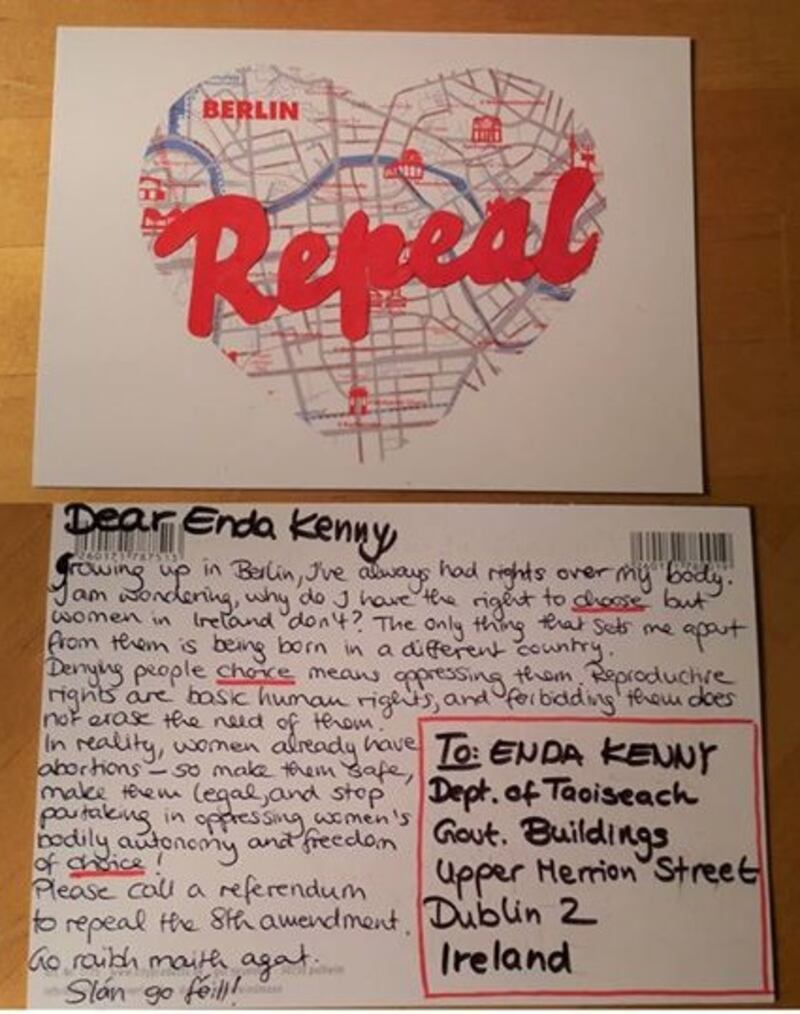 BERLIN
Repeal
Dear Enda Kenny,
Growing up in Berlin, I've always had rights over my body.
I am wondering, why do I have the right to choose but
women in Ireland don't? The only thing that sets me apart
from them is being born in a different country.
Denying people choice means oppressing them. Reproductive
rights are basic human rights, and forbidding them does
not erase the need of them.
In reality, women already have
abortions – so make them safe,
make them legal, and stop
partaking in oppressing women's
bodily autonomy and freedom
of choice!
Please call a referendum
to repeal the 8th amendment.
Go raibh maith agat.
Slán go fóill!
To: ENDA KENNY
Dept. of Taoiseach
Govt. Buildings
Upper Merrion Street
Dublin 2
Ireland